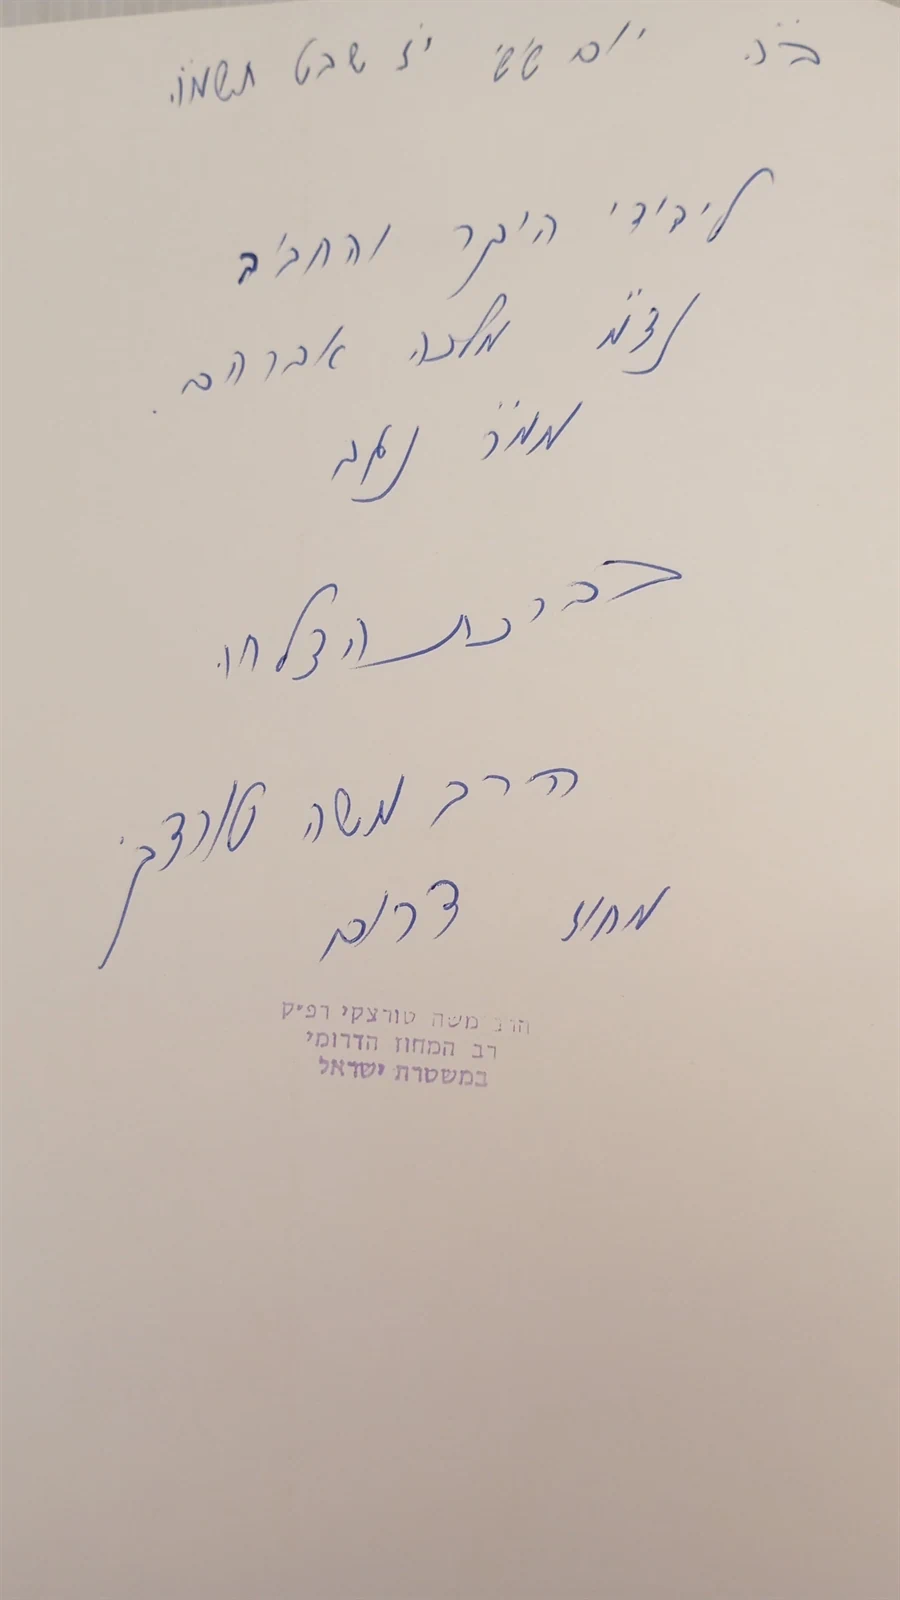 ב"ה יום שישי י"ז שבט תשמ"ו.
לידידי היקר והחביב
נצ"מ מלכה אברהם.
ממ"ר נגב
בברכת הצלחה.
הרב משה טורצקי
מחוז דרום
הרב משה טורצקי רפ"ק
רב המחוז הדרומי
במשטרת ישראל